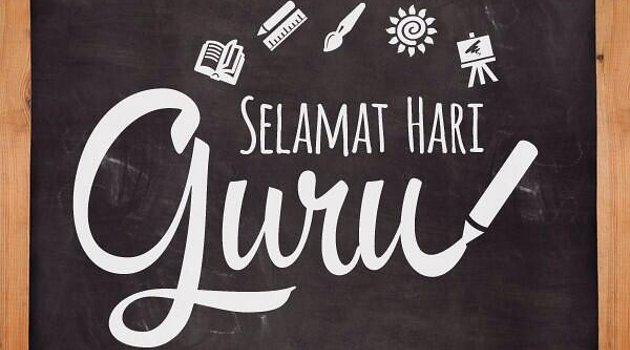 SELAMAT HARI
Guru